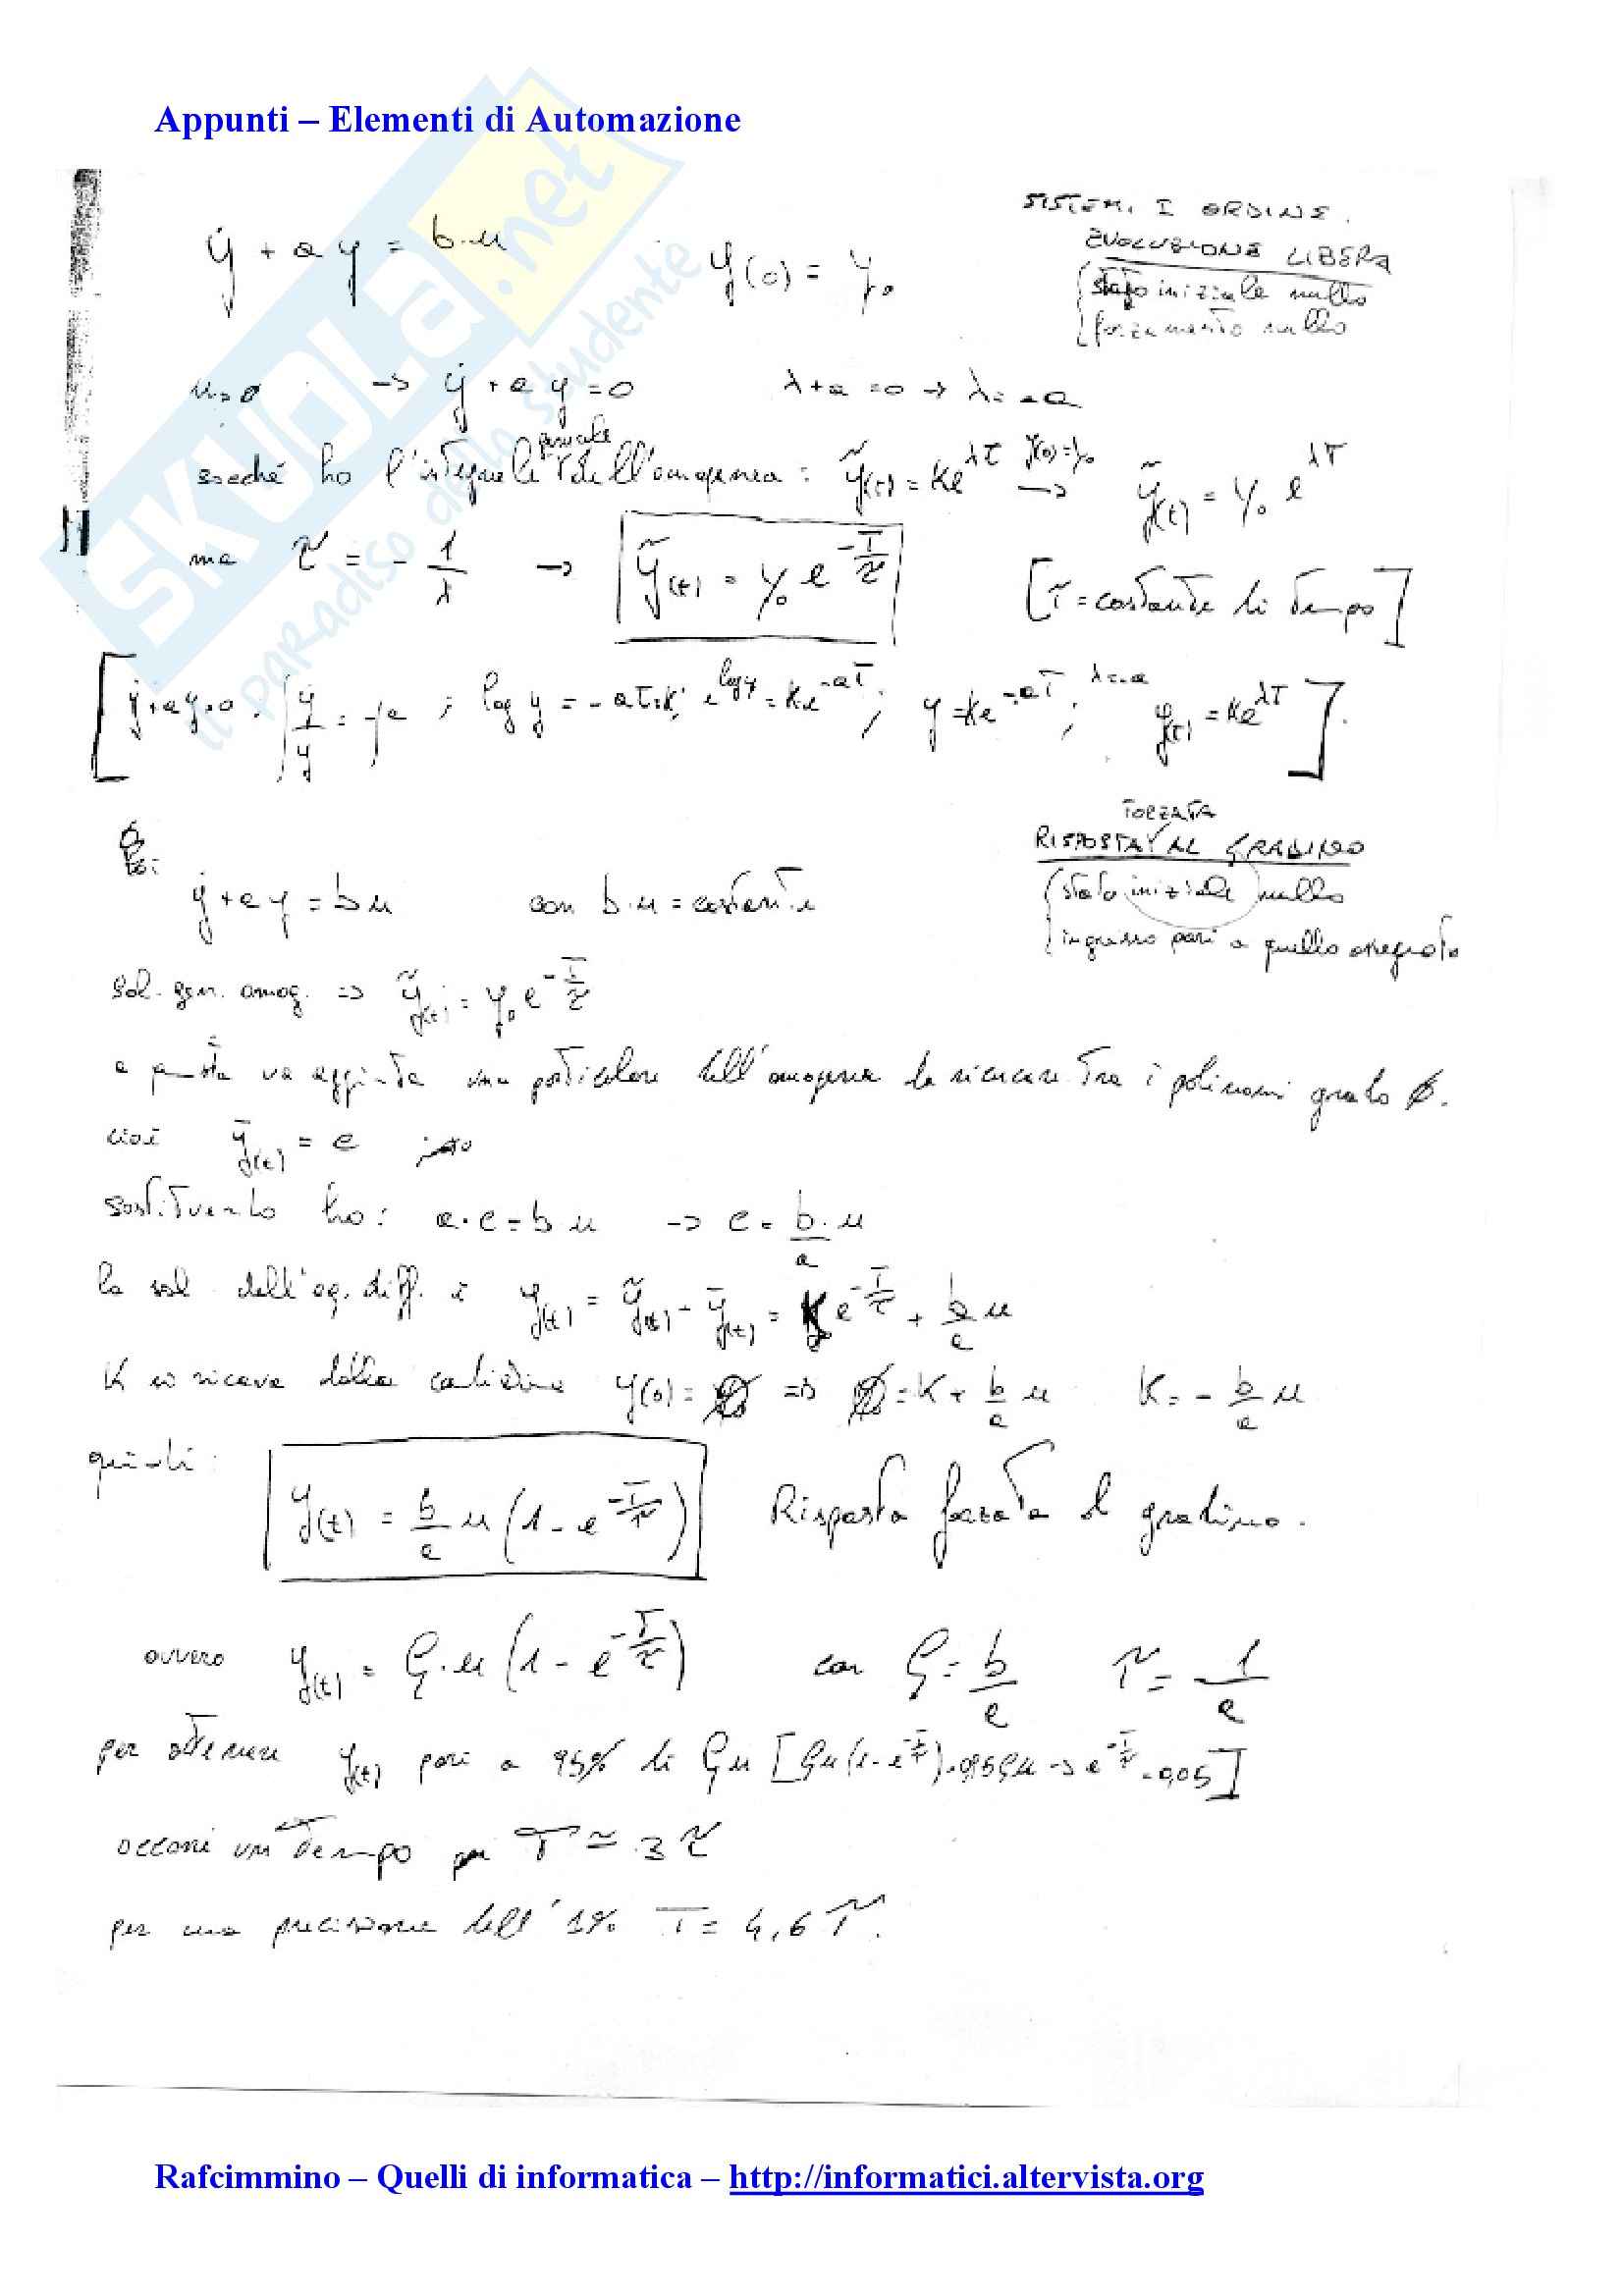 Appunti – Elementi di Automazione
SKUOLA.net
il paradiso dello studente
SISTEMI I ORDINE.
EVOLUZIONE LIBERA
ẏ + a y = b·u y(0) = y₀
stato iniziale nullo
forzamento nullo
u=0 -> ẏ + a y = 0 λ+a = 0 → λ = -a
ho l'integrale generale dell'omogenea : ỹ(t) = Ke^λt y(0)=y₀ → ỹ(t) = y₀ e^λt
ma τ = - 1/λ → ỹ(t) = y₀ e^-t/τ [τ = costante di tempo]
[ẏ+ay=0 ; ẏ/y = -a ; log y = -at+k ; e^log y = ke^-at ; y = ke^-at ; λ=-a y(t) = ke^λt].
FORZATA
RISPOSTA AL GRADINO
ẏ + a y = b u con b·u = costante
stato iniziale nullo
ingresso pari a quello assegnato
sol. gen. omog. => ỹ(t) = y₀ e^-t/τ
a questa va aggiunta una particolare dell'omogenea da ricercare tra i polinomi grado 0.
cioè ȳ(t) = c
sostituendo ho : a·c = b u -> c = b/a·u
la sol. dell'eq. diff. è y(t) = ỹ(t) + ȳ(t) = K e^-t/τ + b/a u
K si ricava dalla condizione y(0) = 0 => 0 = K + b/a u K = - b/a u
quindi :
y(t) = b/a u (1 - e^-t/τ) Risposta forzata al gradino.
ovvero y(t) = G·u (1 - e^-t/τ) con G = b/a τ = 1/a
per ottenere y(t) pari a 95% di Gu [Gu(1-e^-t/τ) = 0,95Gu -> e^-t/τ = 0,05]
occorre un tempo T ≃ 3 τ
per una precisione dell'1% T = 4,6 τ.
Rafcimmino – Quelli di informatica – http://informatici.altervista.org